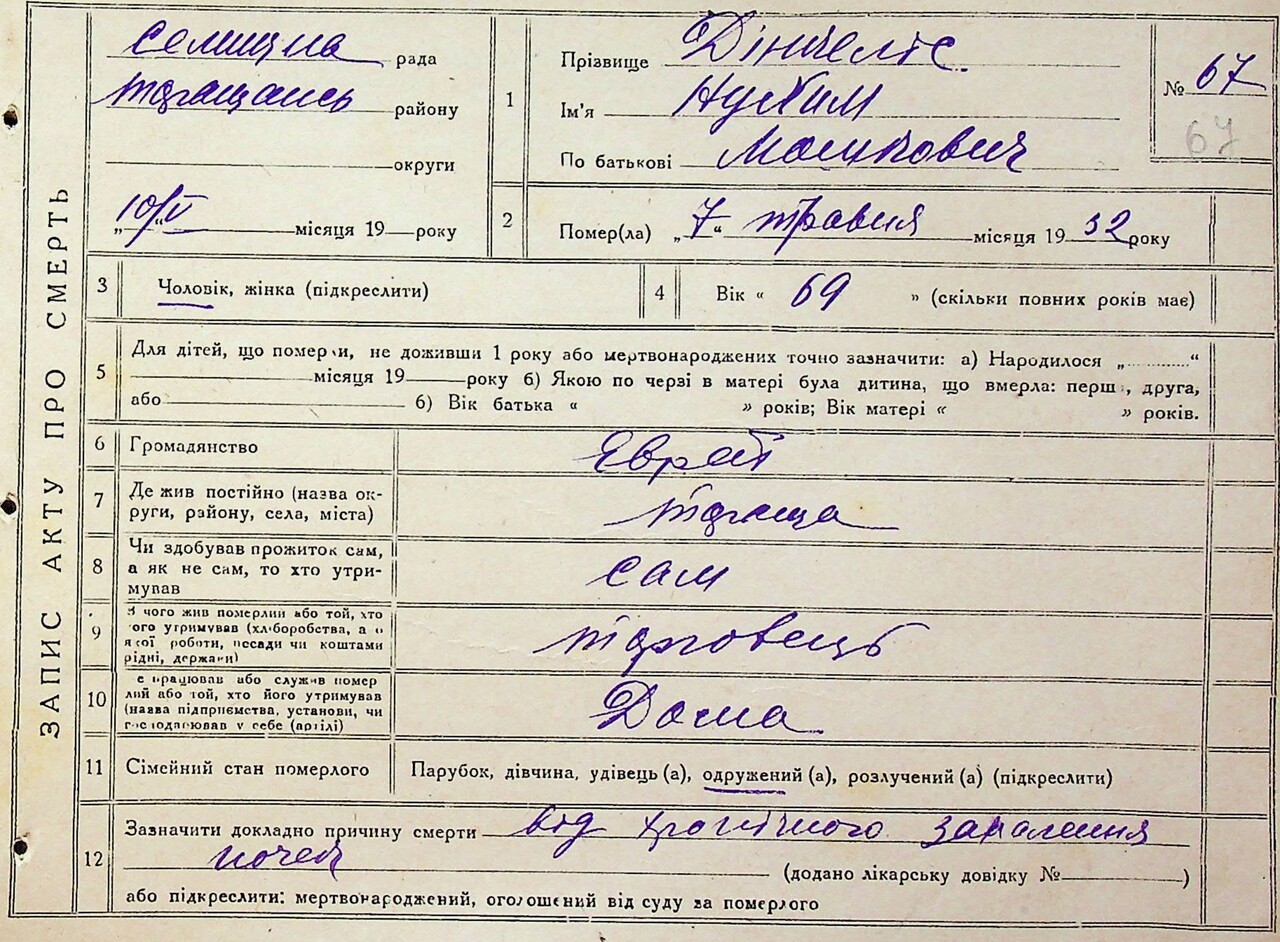 ЗАПИС АКТУ ПРО СМЕРТЬ
Селищна рада
району
округи
„10/V“ місяця 19 року
1
Прізвище
Ім'я Нухим
По батькові Мошкович
№ 67
67
2
Помер(ла) „7“ травня місяця 19 32 року
3
Чоловік, жінка (підкреслити)
4
Вік « 69 » (скільки повних років має)
5
Для дітей, що померли, не доживши 1 року або мертвонароджених точно зазначити: а) Народилося „..........“
місяця 19 року б) Якою по черзі в матері була дитина, що вмерла: перш, друга,
або б) Вік батька « » років; Вік матері « » років.
6
Громадянство
Еврей
7
Де жив постійно (назва ок-
руги, району, села, міста)
8
Чи здобував прожиток сам,
а як не сам, то хто утри-
мував
сам
9
З чого жив померлий або той, хто
його утримував (хліборобства, а о
якої роботи, посади чи коштами
рідні, держави)
торговець
10
е працював або служив помер
лий або той, хто його утримував
(назва підприємства, установи, чи
господарював у себе (артілі)
Дома
11
Сімейний стан померлого
Парубок, дівчина, удівець (а), одружений (а), розлучений (а) (підкреслити)
12
Зазначити докладно причину смерти від хронічного запалення
почек
(додано лікарську довідку № )
або підкреслити: мертвонароджений, оголошений від суду за померлого